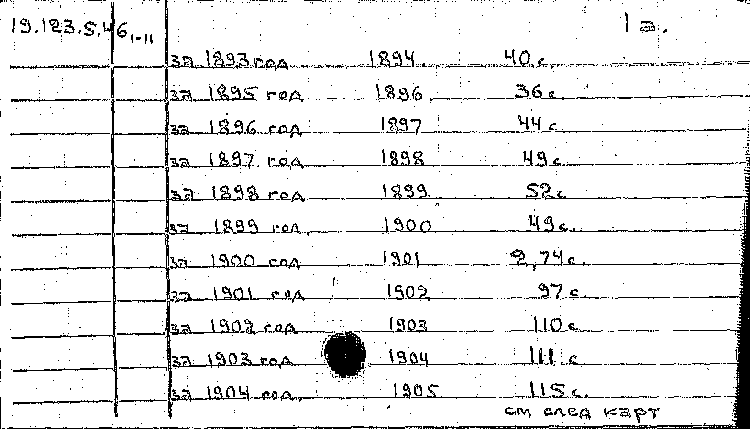 19.123.5.46 1-11 1а.
за 1893 год 1894. 40 с.
за 1895 год 1896 36 с.
за 1896 год 1897 44 с.
за 1897 год 1898 49 с.
за 1898 год 1899 52 с
за 1899 год 1900 49 с.
за 1900 год 1901 2,74 с.
за 1901 год 1902 97 с.
за 1902 год 1903 110 с
за 1903 год 1904 111 с
за 1904 год 1905 115 с.
см след карт